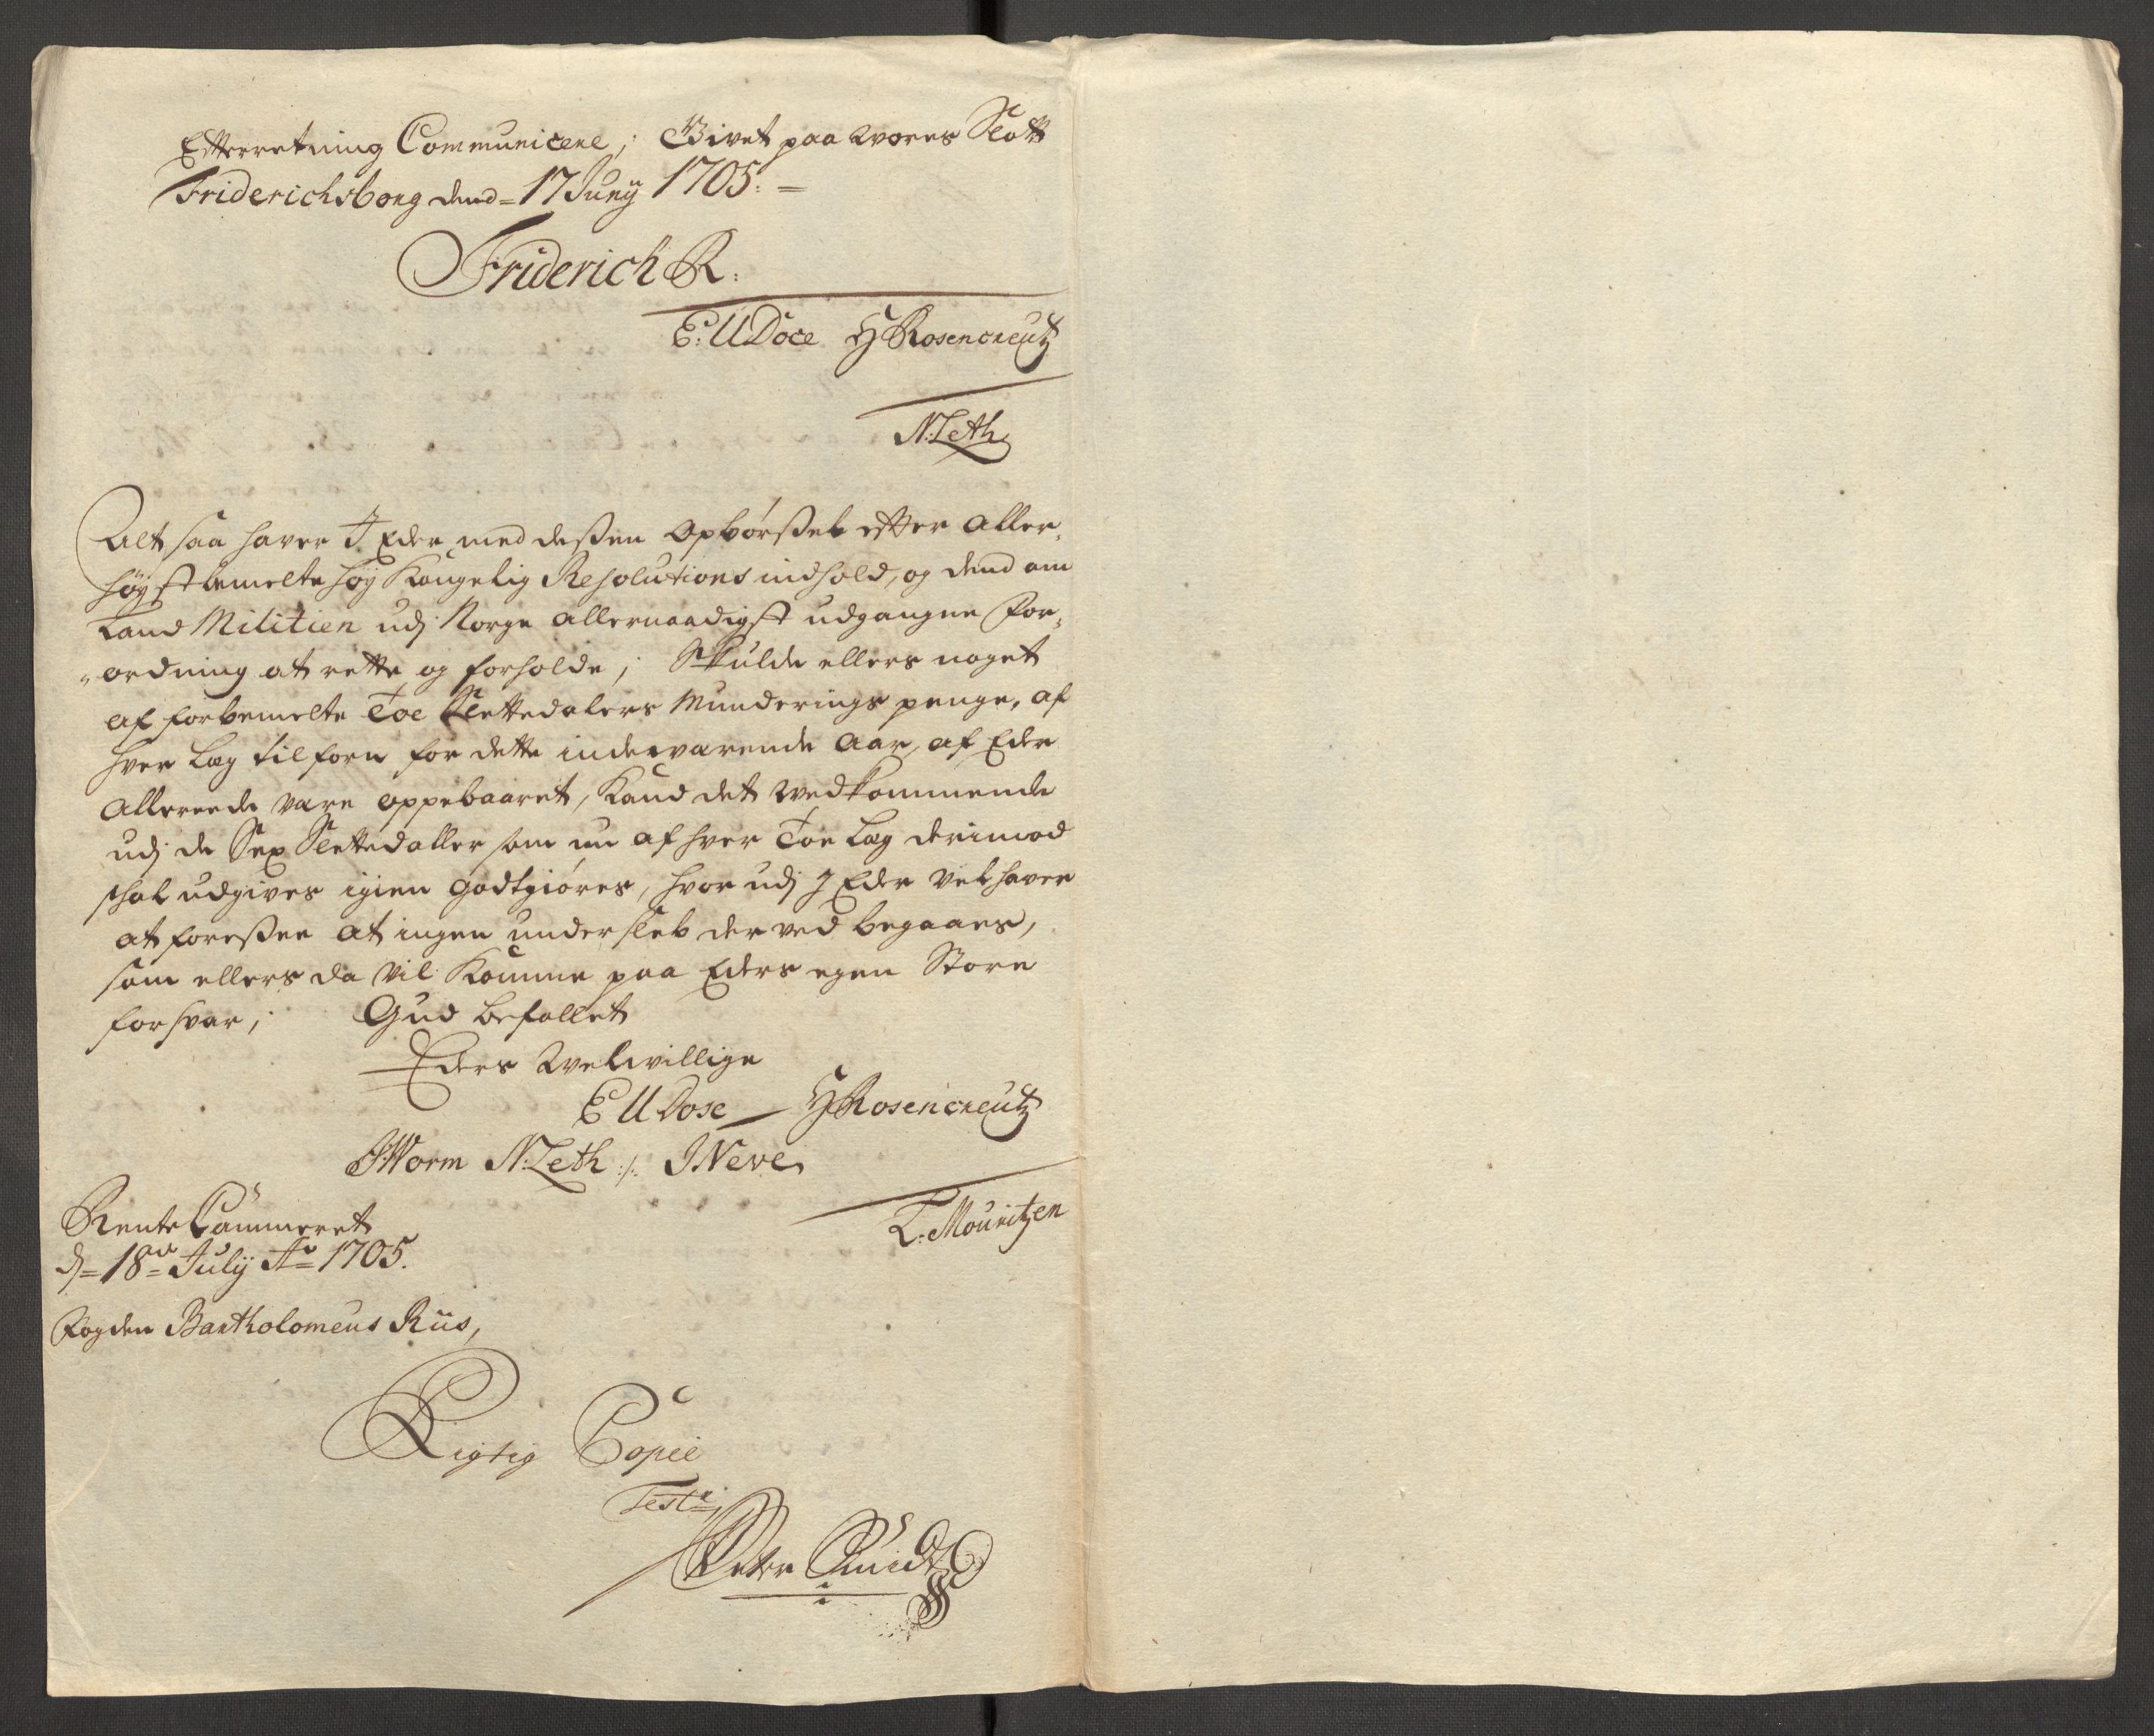 Efterretning Communicere; Givet paa Vores Slott
Friderichsborg dend = 17 Junÿ 1705. =
Friderich R:
E: U Doce H Rosencreutz
N: Leth
Alt saa haver I Eder med deßen Opbørßel efter aller„
høyst bemelte høy Kongelig Resolutions indhold, og dend om
Land Militien udj Norge allernaadigst udgangne For„
„ordning at rette og forholde; Skulde ellers noget
af forbemelte Toe Slettedalers Munderings penge, af
hver Læg tilforn for dette indeværende Aar, af Eder
Allereede være oppebaaret, Kand det Vedkommende
udj de Sex Slettedaller som nu af hver Toe Læg derimod
schal udgives igien godtgiøres, hvor udj I Eder vel haver
at foreßee at ingen underslæb der ved begaaes,
som ellers da vil Komme paa Eders egen Store
forsvar; Gud befallet
Eders Velvillige
E U Dose H Rosencreutz
J: Worm N: Leth ./. J Neve
L: Mouritzen
Rente Cammeret
d = 18de July Ao 1705.
Fogden Bartholomeus Riis,
Rigtig Copie
Teste
Peter Smidt